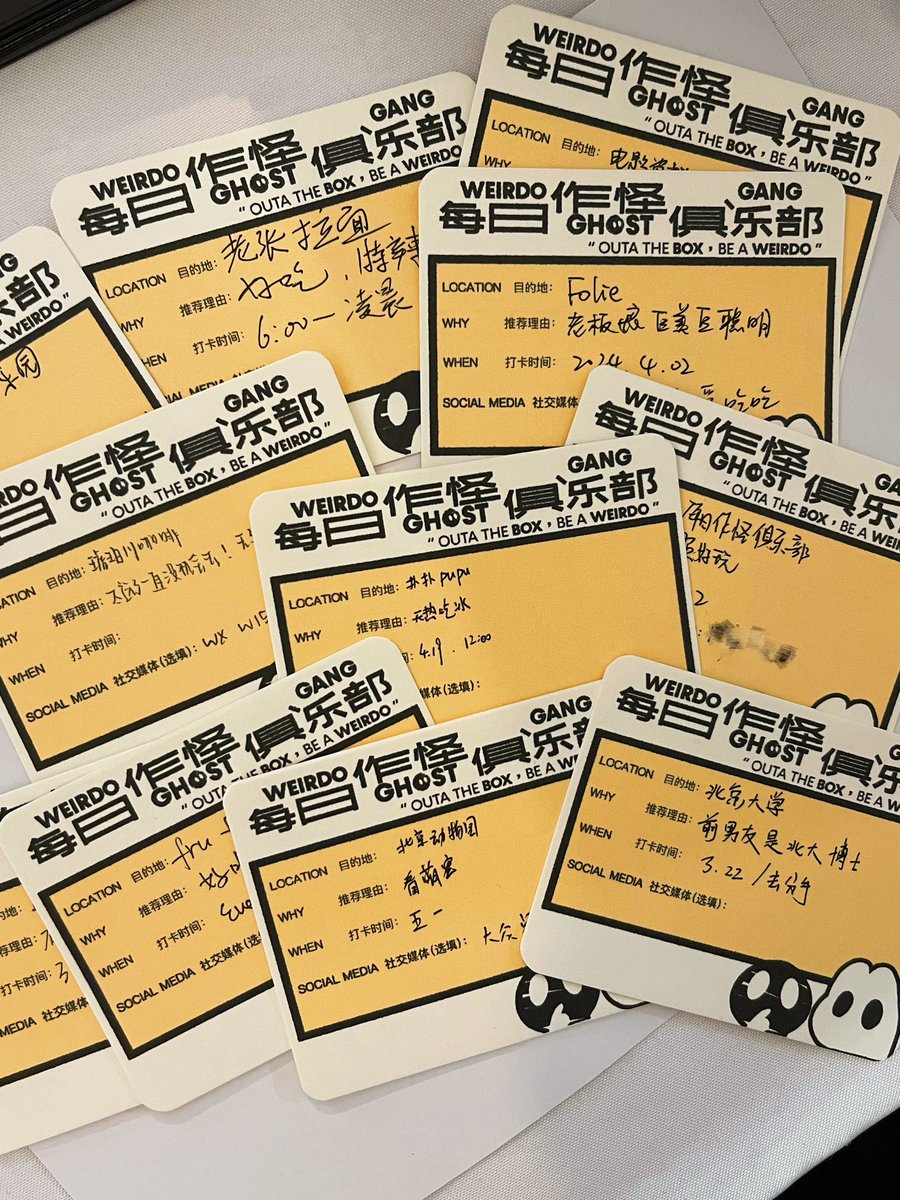 WEIRDO GANG
每日作怪俱乐部
GHOST
“ OUTA THE BOX，BE A WEIRDO ”
LOCATION 目的地：
WHY
WEIRDO GANG
每日作怪俱乐部
GHOST
“ OUTA THE BOX，BE A WEIRDO
LOCATION 目的地：老张拉面
WHY 推荐理由：好吃，
WHEN 打卡时间：6:00一凌晨
WEIRDO GANG
每日作怪俱乐部
GHOST
“ OUTA THE BOX，BE A WEIRDO ”
LOCATION 目的地：Folie
WHY 推荐理由：老板娘巨美巨聪明
WHEN 打卡时间：2024.4.02
SOCIAL MEDIA 社交媒体
GANG
部
WEIRDO ”
乐园
GANG
日作怪俱乐部
GHOST
“ OUTA THE BOX，BE A WEIRDO ”
目的地：
WHY 推荐理由：
WHEN 打卡时间：
SOCIAL MEDIA 社交媒体(选填)：
WEIRDO GANG
每日作怪俱乐部
GHOST
“ OUTA THE BOX，BE A WEIRDO ”
LOCATION 目的地：扑扑pupu
WHY 推荐理由：天热吃冰
4.19. 12:00
社交媒体(选填)：
WEIRDO
作怪俱乐
GHOST
“ OUTA THE BOX，BE A WEIRDO
作怪俱乐部
WEIRDO GANG
每日作怪俱乐部
GHOST
“ OUTA THE BOX，BE A WEIRDO ”
LOCATION 目的地：fru
WHY 推荐理由：
WHEN 打卡时间：
SOCIAL MEDIA 社交媒体(选填)：
WEIRDO GANG
每日作怪俱乐部
GHOST
“ OUTA THE BOX，BE A WEIRDO
LOCATION 目的地：北京动物园
WHY 推荐理由：看萌宠
WHEN 打卡时间：五一
SOCIAL MEDIA 社交媒体(选填)：大众
WEIRDO GANG
每日作怪俱乐
GHOST
“ OUTA THE BOX，BE A WEIRDO
LOCATION 目的地：北京大学
WHY 推荐理由：前男友是北大博士
WHEN 打卡时间：3.22/去分手
SOCIAL MEDIA 社交媒体(选填)：
目的地：
推荐理由：
打卡时间：
MEDIA 社交媒体(选填)：